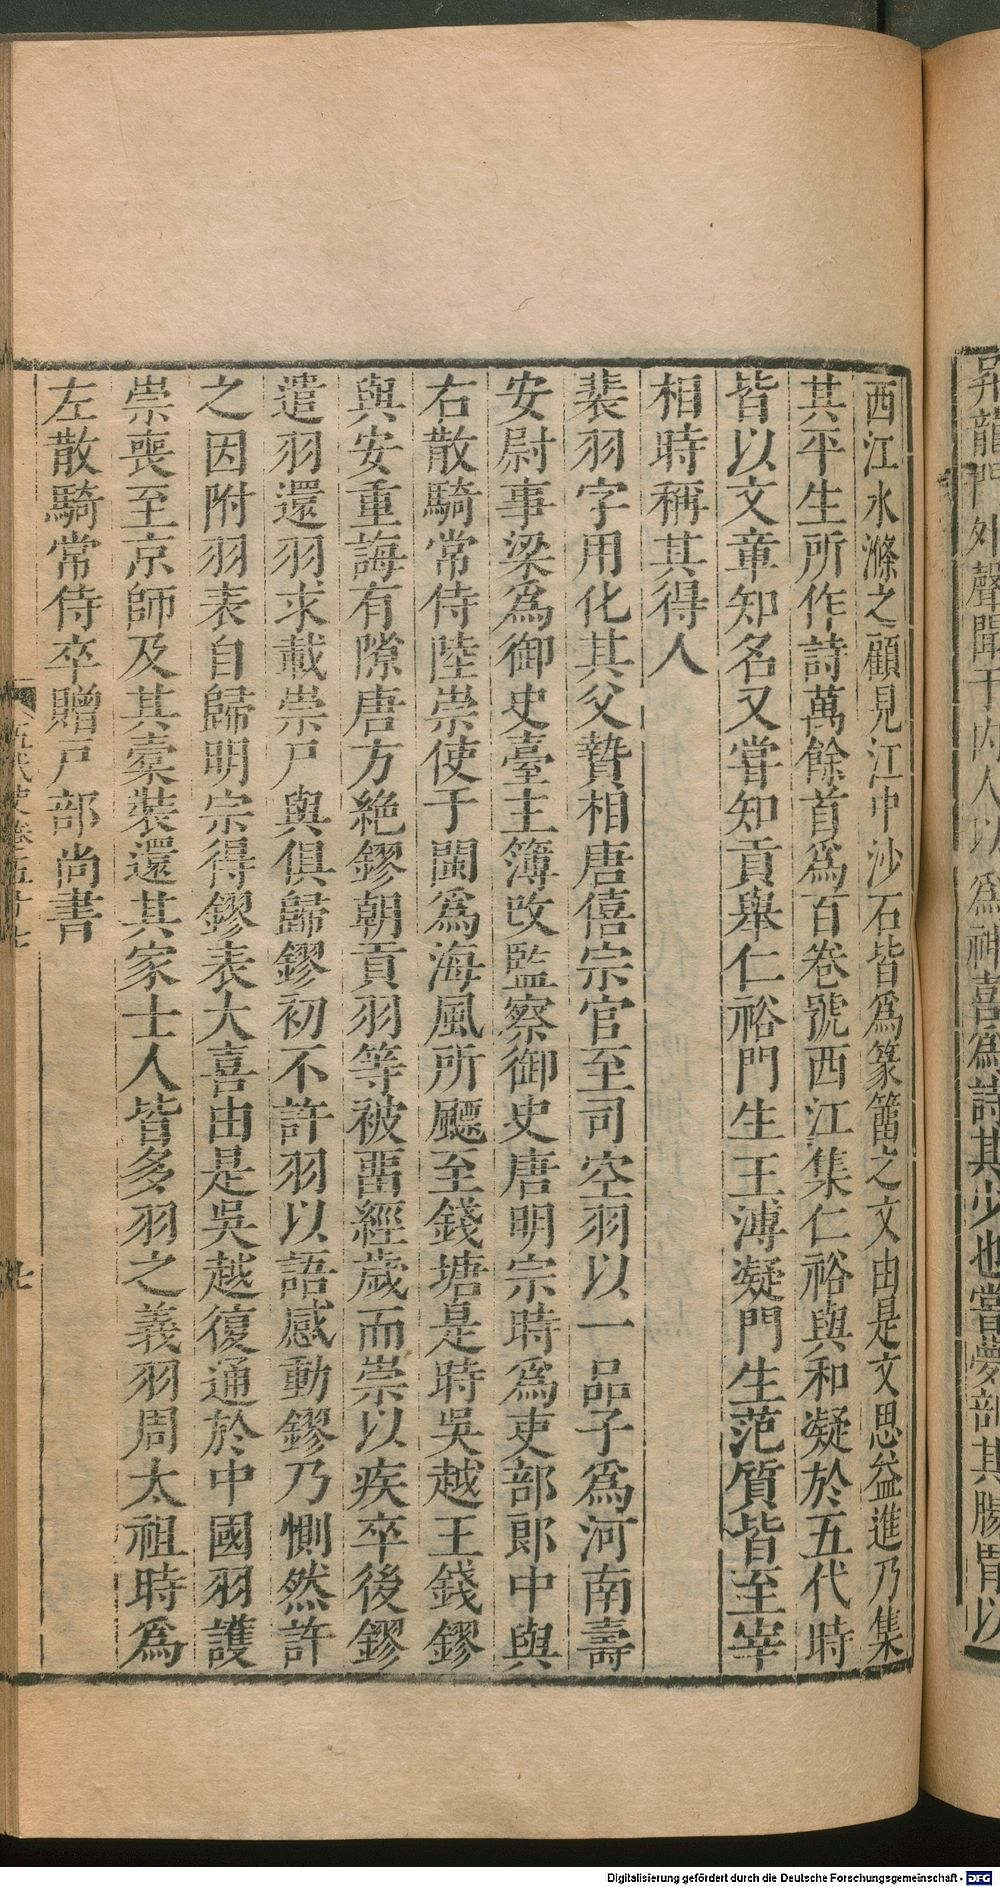 西江水滌之顧見江中沙石皆爲篆籀之文由是文思益進乃集
其平生所作詩萬餘首爲百卷號西江集仁裕與和凝於五代時
皆以文章知名又嘗知貢舉仁裕門生王溥凝門生范質皆至宰
相時稱其得人
裴羽字用化其父贄相唐僖宗官至司空羽以一品子爲河南壽
安尉事梁爲御史臺主簿改監察御史唐明宗時爲吏部郎中與
右散騎常侍陸崇使于閩爲海風所飄至錢塘是時吳越王錢鏐
與安重誨有隙唐方絶鏐朝貢羽等被畱經歲而崇以疾卒後鏐
遣羽還羽求載崇尸與俱歸鏐初不許羽以語感動鏐乃惻然許
之因附羽表自歸明宗得鏐表大喜由是吳越復通於中國羽護
崇喪至京師及其槖裝還其家士人皆多羽之義羽周太祖時爲
左散騎常侍卒贈戸部尚書
五代史卷五十七
七
Digitalisierung gefördert durch die Deutsche Forschungsgemeinschaft - DFG